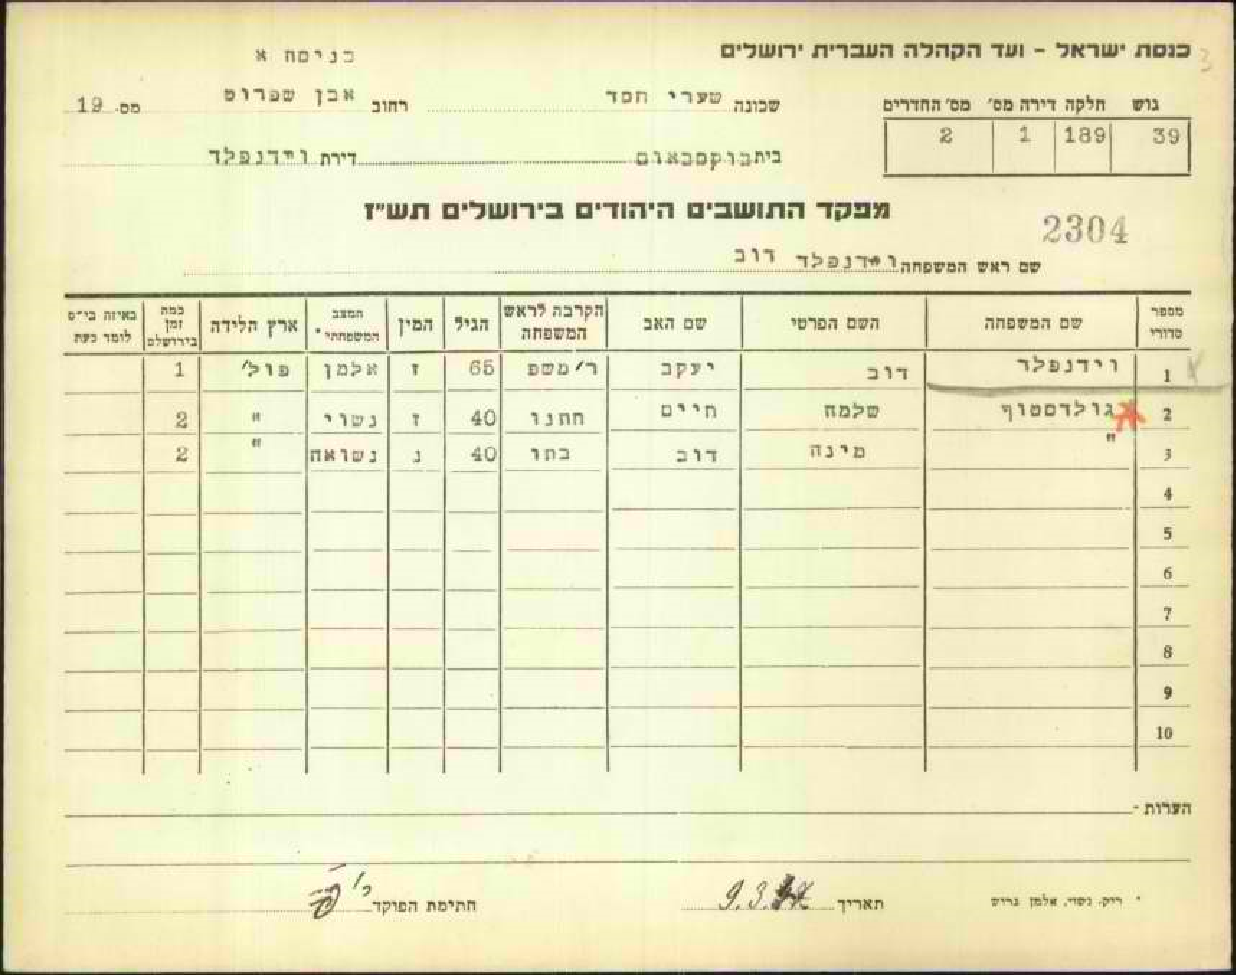 כנסת ישראל - ועד הקהלה העברית ירושלים
כניסה א
גוש חלקה דירה מס' מס' החדרים
39 189 1 2
שכונה שערי חסד רחוב אבן שפרוט מס. 19
בית בוקסבאום דירת ווידנפלד
מפקד התושבים היהודים בירושלים תש"ז
2304
שם ראש המשפחה ווידנפלד דוב
מספר סדורי שם המשפחה השם הפרטי שם האב הקרבה לראש המשפחה הגיל המין המצב המשפחתי* ארץ הלידה כמה זמן בירושלים באיזה בי"ס לומד כעת
1 וידנפלד דוב יעקב ר'משפ 65 ז אלמן פול' 1
2 גולדסטוף שלמה חיים חתנו 40 ז נשוי " 2
3 " מינה דוב בתו 40 נ נשואה " 2
4
5
6
7
8
9
10
הערות -
* רוק, נשוי, אלמן גרוש תאריך 9.3. חתימת הפוקד
3